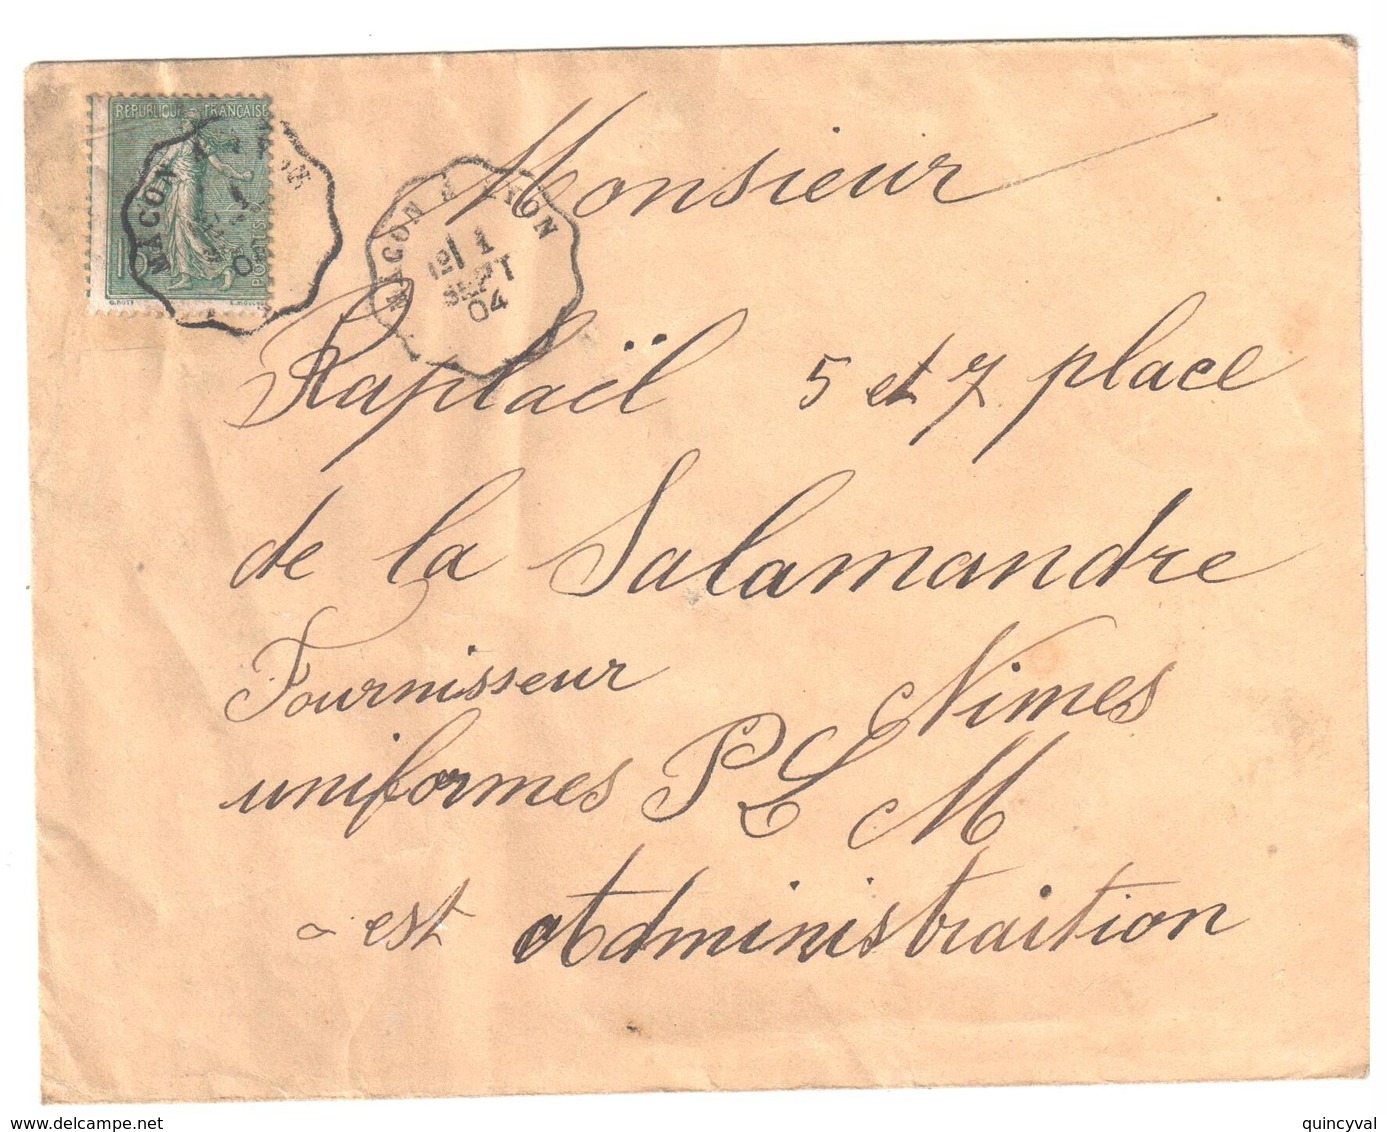 REPUBLIQUE FRANÇAISE
MACON
MACON A LYON
1
SEPT
04
Monsieur
Raphaël 5 et 7 place
de la Salamandre
Fournisseur Nimes
uniformes P L M
est Administraition
www.delcampe.net
quincyval